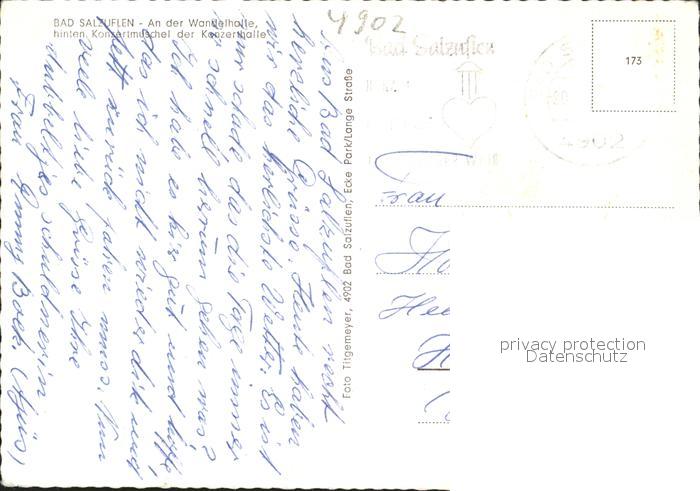 BAD SALZUFLEN - An der Wandelhalle,
hinten Konzertmuschel der Konzerthalle
4902
Bad Salzuflen
173
4902
Aus Bad Salzuflen recht
herzliche Grüsse. Heute haben
wir das herlichste Wetter. Es ist
nur schade das die Tage immer
so schnell herum gehen was?
Ich hab es hir gut und hoffe,
das ich nicht wieder dik und
fett zurück fahren muss. Nun
viele liebe Grüsse Ihre
schuldnerin
Frau Emmy Bock.
Foto Titgemeyer, 4902 Bad Salzuflen, Ecke Park/Lange Straße
Frau
privacy protection
Datenschutz